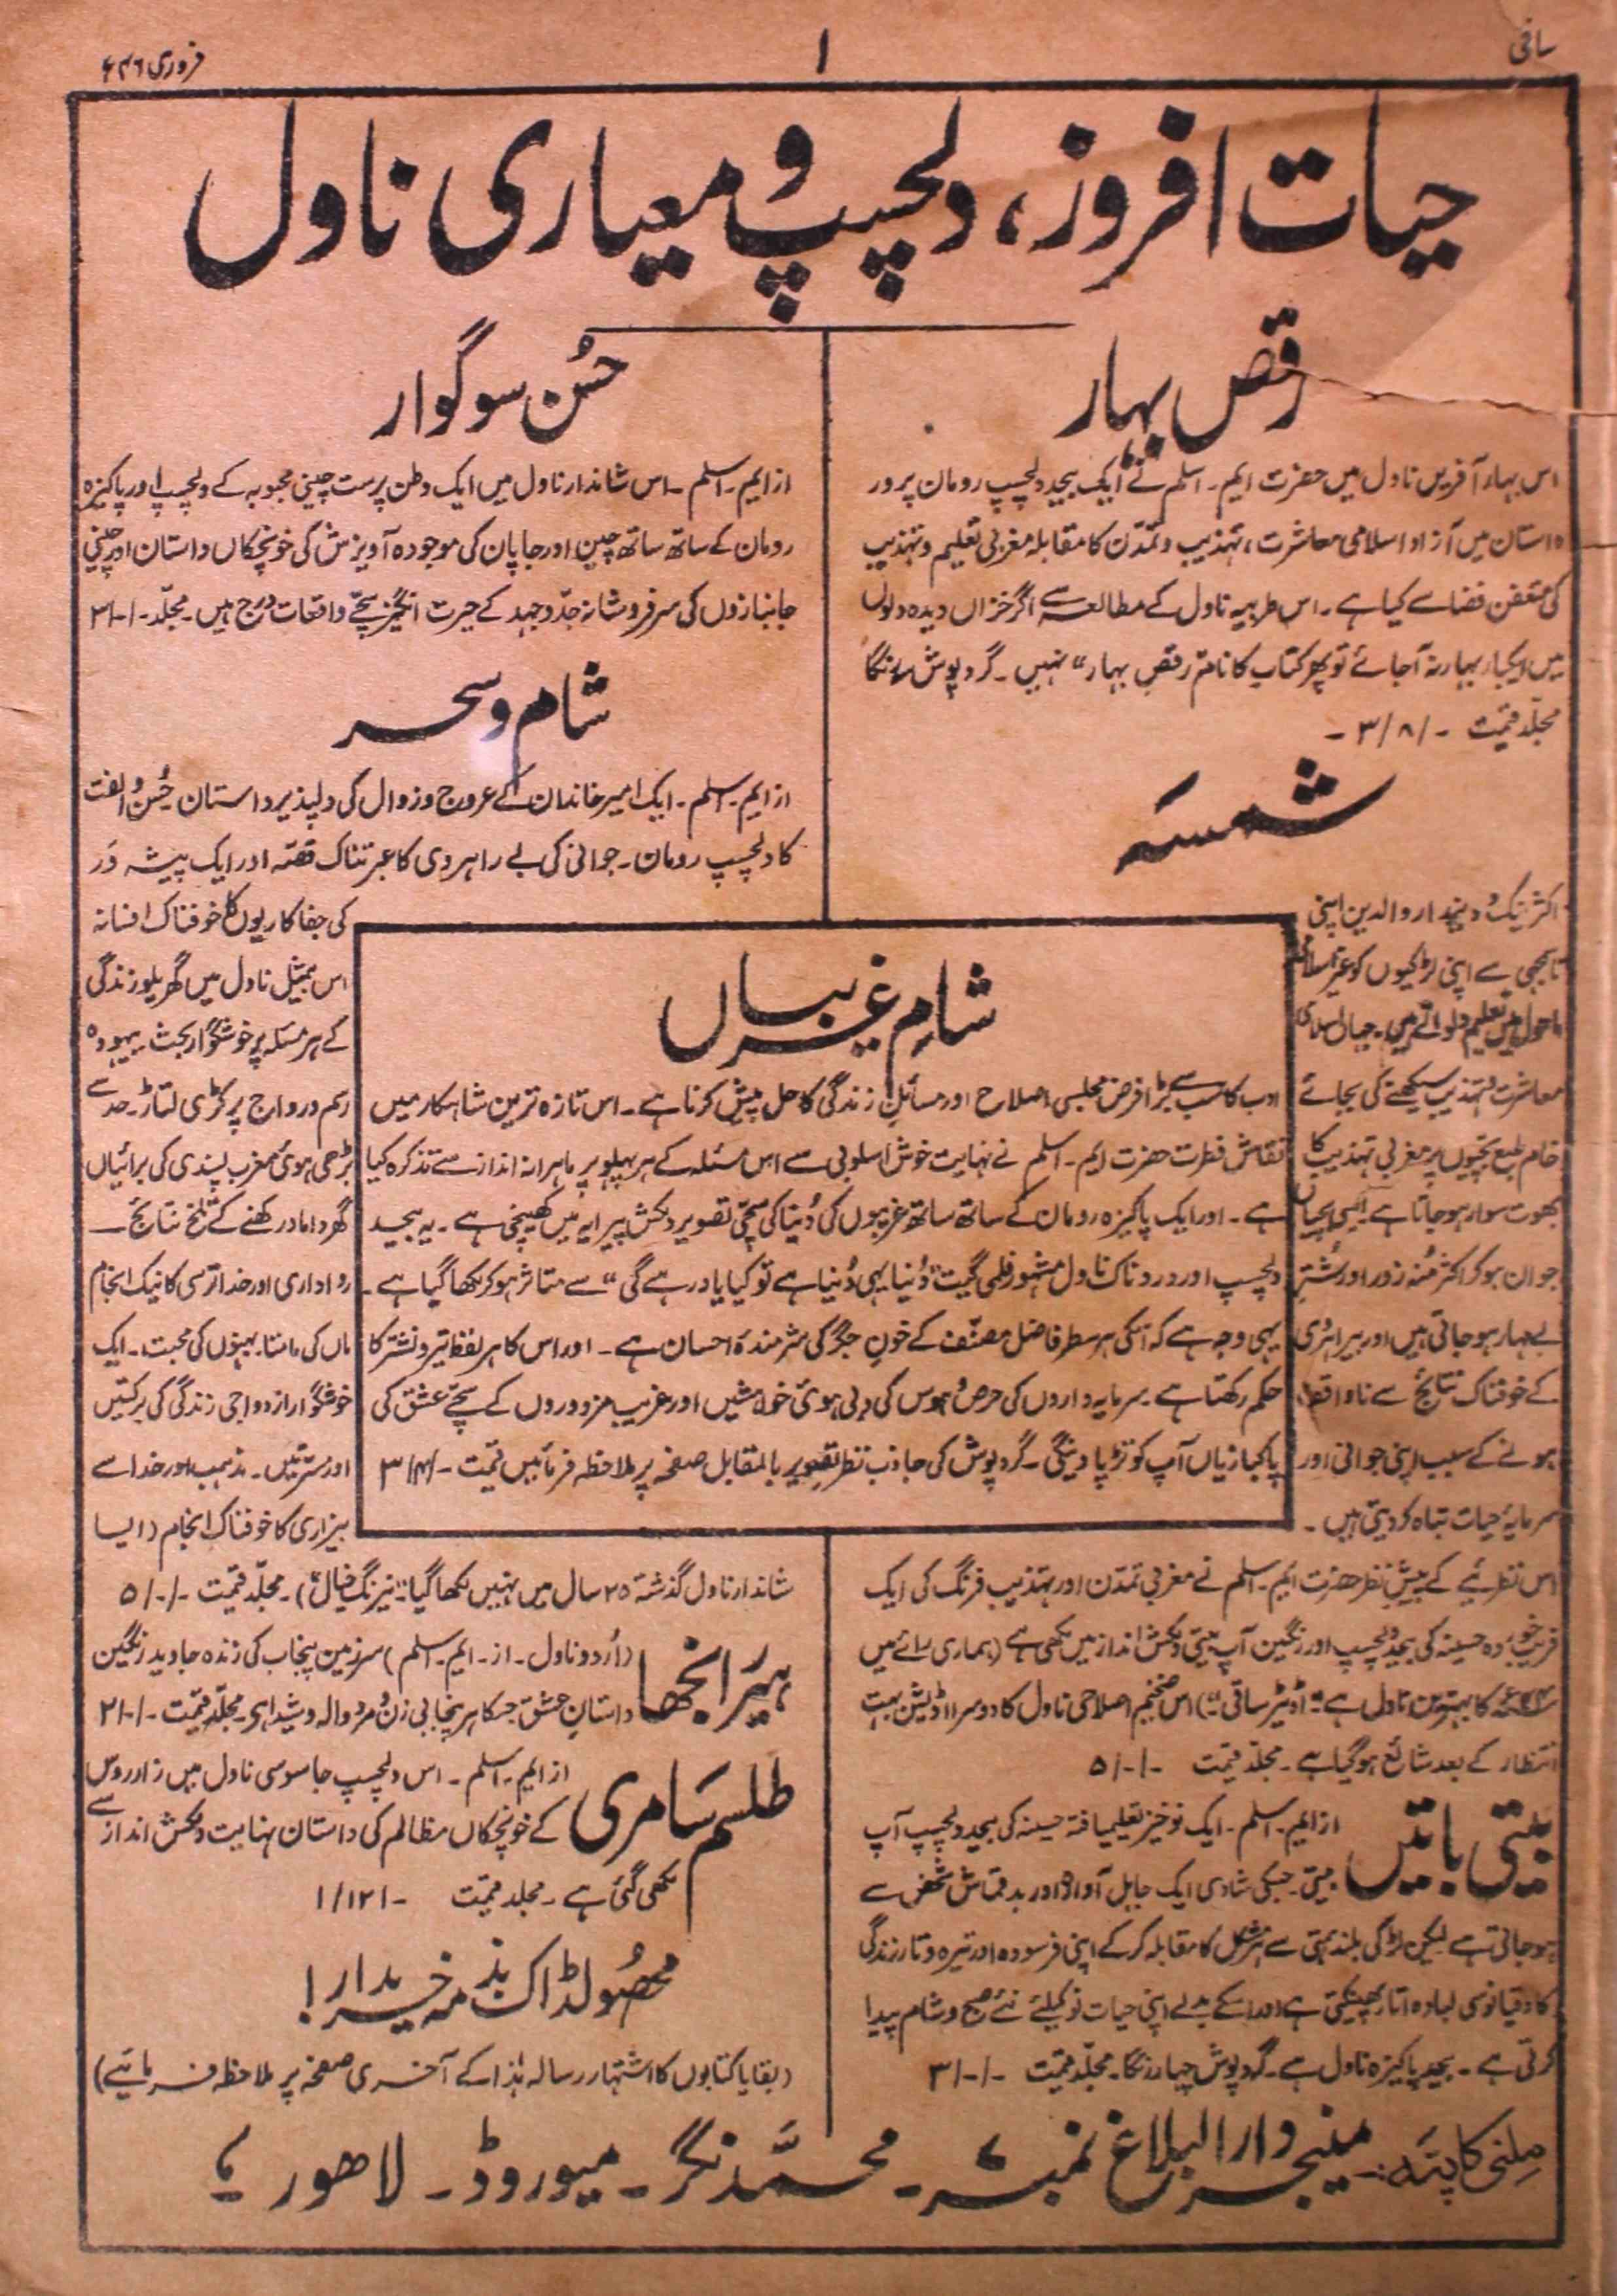 ساقی
۱
فروری ۴۶ء
حیات افروز، دلچسپ و معیاری ناول
رقص بہار
اس بہار آفریں ناول میں حضرت ایم۔ اسلم نے ایک بیحد دلچسپ رومان پرور
داستان میں آزاد اسلامی معاشرت، تہذیب و تمدّن کا مقابلہ مغربی تعلیم و تہذیب
کی متعفن فضا سے کیا ہے۔ اس طربیہ ناول کے مطالعہ سے اگر خزاں دیدہ دلوں
میں ایکبار بہار نہ آجائے تو پھر کتاب کا نام "رقصِ بہار" نہیں۔ گرد پوش
مجلّد قیمت -/۳/۸ -
شمسہ
اکثر نیک و دیندار والدین اپنی
ناسمجھی سے اپنی لڑکیوں کو غیر اسلامی
ماحول میں تعلیم دلواتے ہیں۔ جہاں اسلامی
معاشرت و تہذیب سیکھنے کی بجائے
خام طبع بچیوں پر مغربی تہذیب کا
بھوت سوار ہو جاتا ہے۔ ایسی بچیاں
جوان ہو کر اکثر مُنہ زور اور شُترِ
بے مہار ہو جاتی ہیں اور بیراہ روی
کے خوفناک نتائج سے ناواقف
ہونے کے سبب اپنی جوانی اور
سرمایۂ حیات تباہ کر دیتی ہیں۔
اس نظریئے کے پیشِ نظر حضرت ایم۔ اسلم نے مغربی تمدّن اور تہذیب فرنگ کی ایک
فریب خوردہ حسینہ کی بیحد دلچسپ اور رنگین آپ بیتی دلکش انداز میں لکھی ہے (ہماری رائے میں
کا بہترین ناول ہے "اڈیٹر ساقی") اس ضخیم اصلاحی ناول کا دوسرا اڈیشن بہت
انتظار کے بعد شائع ہو گیا ہے۔ مجلّد قیمت -/-/۵
بیتی باتیں
از ایم۔ اسلم۔ ایک نوخیز تعلیمیافتہ حسینہ کی بیحد دلچسپ آپ
بیتی۔ جسکی شادی ایک جاہل آوارہ اور بدقماش شخص سے
ہو جاتی ہے لیکن لڑکی بلند ہمتی سے ہر مشکل کا مقابلہ کر کے اپنی فرسودہ اور تیرہ و تار زندگی
کا دقیانوسی لبادہ اتار پھینکتی ہے اور اسکے بدلے اپنی حیات نو کیلئے نئے صبح و شام پیدا
کرتی ہے۔ بیحد پاکیزہ ناول ہے۔ گرد پوش چہار رنگا۔ مجلّد قیمت -/-/۳
حُسن سوگوار
از ایم۔ اسلم۔ اس شاندار ناول میں ایک وطن پرست چینی محبوبہ کے دلچسپ اور پاکیزہ
رومان کے ساتھ ساتھ چین اور جاپان کی موجودہ آویزش کی خونچکاں داستان اور چینی
جانبازوں کی سرفروشانہ جدّوجہد کے حیرت انگیز سچّے واقعات درج ہیں۔ مجلّد -/-/۳
شام و سحر
از ایم۔ اسلم۔ ایک امیر خاندان کے عروج و زوال کی دلپذیر داستان حُسن و الفت
کا دلچسپ رومان۔ جوانی کی بے راہروی کا عبرتناک قصّہ اور ایک پیشہ وَر
کی جفاکاریوں کا خوفناک افسانہ
اس بیمثیل ناول میں گھریلو زندگی
کے ہر مسئلہ پر خوشگوار بحث بیہودہ
رسم و رواج پر کڑی لتاڑ۔ حد سے
بڑھی ہوئی مغرب پسندی کی برائیاں
گھر داماد رکھنے کے تلخ نتائج —
رواداری اور خدا ترسی کا نیک انجام
ماں کی مامتا۔ بہنوں کی محبت۔ ایک
خوشگوار ازدواجی زندگی کی برکتیں
اور مسرتیں۔ مذہب اور خدا سے
بیزاری کا خوفناک انجام (ایسا
شاندار ناول گذشتہ ۲۵ سال میں نہیں لکھا گیا: "نیرنگ خیال")۔ مجلّد قیمت -/-/۵
شامِ غریباں
ادب کا سب سے بڑا فرض مجلسی اصلاح اور مسائلِ زندگی کا حل پیش کرنا ہے۔ اس تازہ ترین شاہکار میں
نقاش فطرت حضرت ایم۔ اسلم نے نہایت خوش اسلوبی سے اس مسئلہ کے ہر پہلو پر ماہرانہ انداز سے تذکرہ کیا
ہے۔ اور ایک پاکیزہ رومان کے ساتھ ساتھ غریبوں کی دُنیا کی سچّی تصویر دلکش پیرایہ میں کھینچی ہے۔ یہ بیحد
دلچسپ اور دردناک ناول مشہور فلمی گیت "دُنیا یہی دُنیا ہے تو کیا یاد رہے گی" سے متاثر ہو کر لکھا گیا ہے۔
یہی وجہ ہے کہ اسکی ہر سطر فاضل مصنّف کے خونِ جگر کی شرمندۂ احسان ہے۔ اور اس کا ہر لفظ تیر و نشتر کا
حکم رکھتا ہے۔ سرمایہ داروں کی حرص و ہوس کی دبی ہوئی خواہشیں اور غریب مزدوروں کے سچّے عشق کی
پاکبازیاں آپ کو تڑپا دینگی۔ گرد پوش کی جاذب نظر تصویر بالمقابل صفحہ پر ملاحظہ فرمائیں قیمت -/۳/۴
ہیر رانجھا
(اُردو ناول۔ از۔ ایم۔ اسلم) سرزمین پنجاب کی زندہ جاوید رنگین
داستانِ عشق جسکا ہر پنجابی زن و مرد والہ و شیدا ہے۔ مجلّد قیمت -/-/۲
طلسم سَامری
از ایم۔ اسلم۔ اس دلچسپ جاسوسی ناول میں زار روس
کے خونچکاں مظالم کی داستان نہایت دلکش انداز سے
لکھی گئی ہے۔ مجلد قیمت -/۱/۱۲
محصُولڈاک بذمہ خریدار!
(بقایا کتابوں کا اشتہار رسالہ ہٰذا کے آخری صفحہ پر ملاحظہ فرمائیے)
مِلنے کا پتہ:- مینیجر دارالبلاغ نمبر ۔ محمّد نگر۔ میوروڈ۔ لاھور ؛